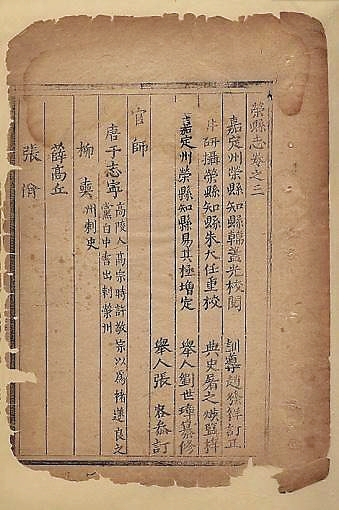 榮縣志卷之三
嘉定州榮縣知縣韓蓋光校閱 訓導趙 訂正
井研攝榮縣知縣朱大任重校 典史屠之煥監梓
嘉定州榮縣知縣易其極增定 舉人劉世璋纂修
舉人張 叅訂
官師
唐于志寧 高陵人高宗時許敬宗以為褚遂良之
黨白中書出刺榮州
柳奭 州刺史
薛高丘
張